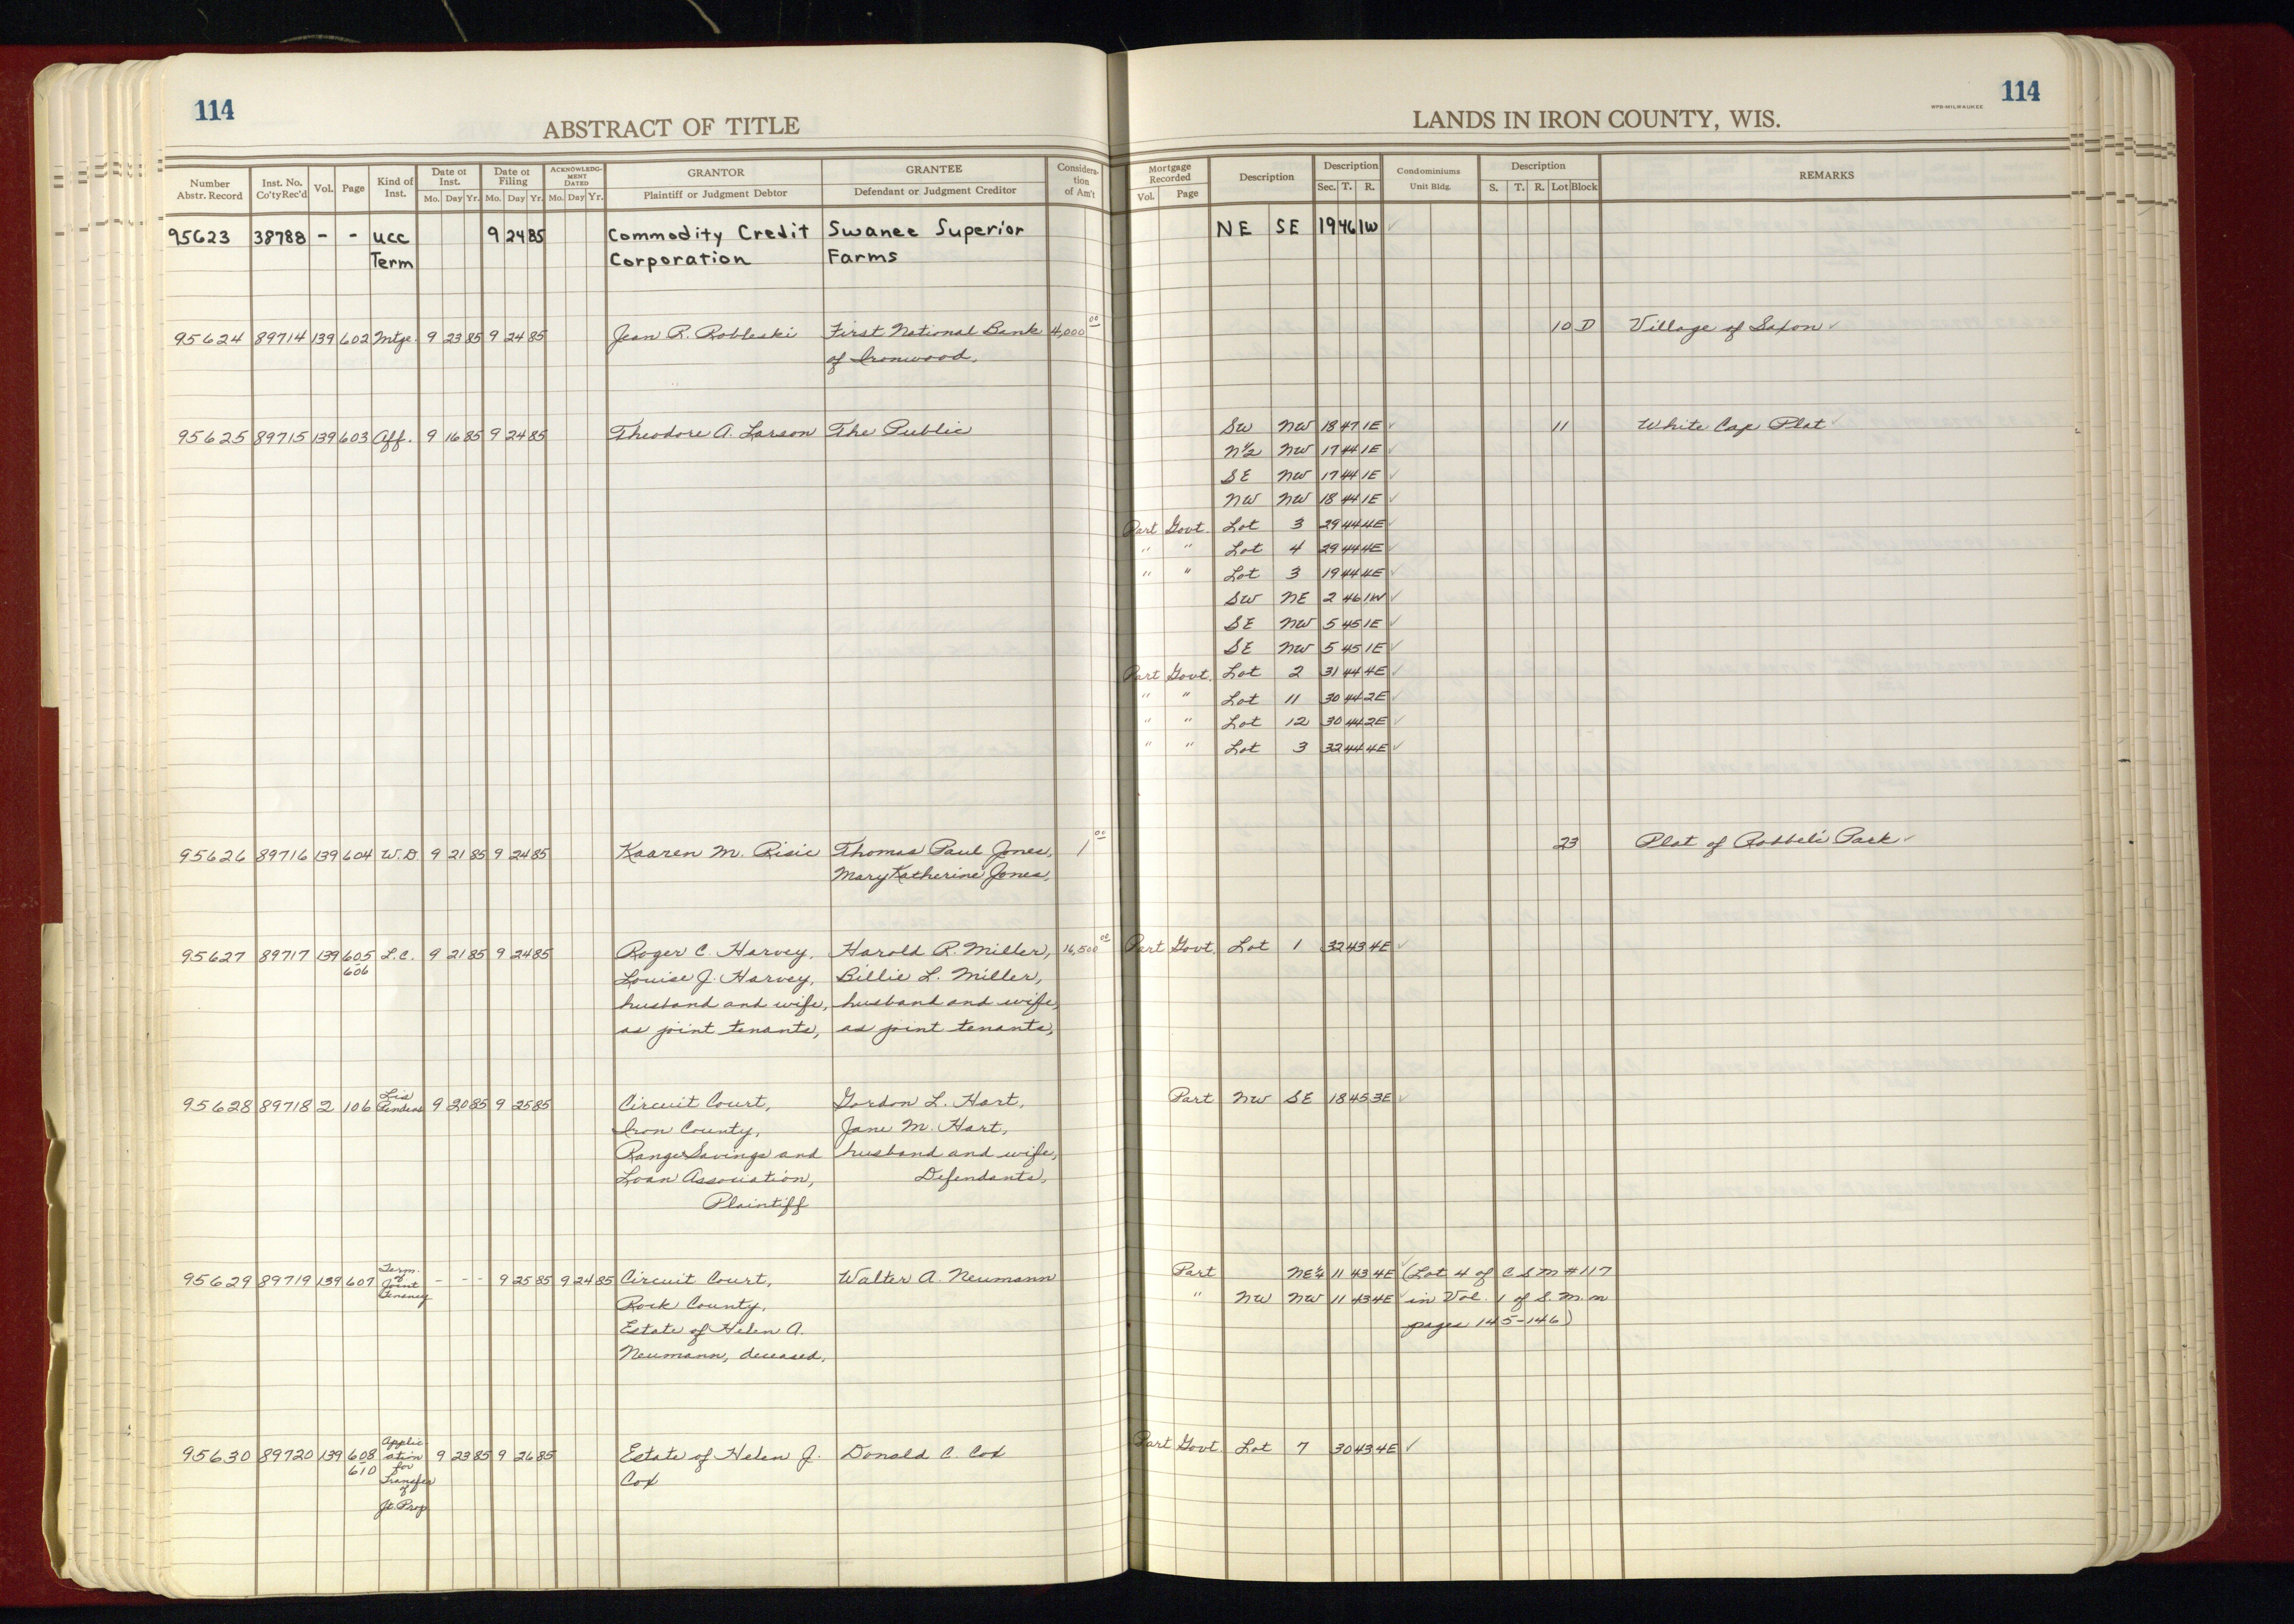 114
ABSTRACT OF TITLE
Number Abstr. Record | Inst. No. Co'ty Rec'd | Vol. | Page | Kind of Inst. | Date of Inst. Mo. Day Yr. | Date of Filing Mo. Day Yr. | ACKNOWLEDGMENT DATED Mo. Day Yr. | GRANTOR Plaintiff or Judgment Debtor | GRANTEE Defendant or Judgment Creditor | Consideration of Am't
95623 38788 - - UCC 9 24 85 Commodity Credit Swanee Superior
Term Corporation Farms
95624 89714 139 602 Mtge. 9 23 85 9 24 85 Jean R. Robleski First National Bank 4,000 00
of Ironwood,
95625 89715 139 603 Aff. 9 16 85 9 24 85 Theodore A. Larson The Public
95626 89716 139 604 W.D. 9 21 85 9 24 85 Kaaren M. Risic Thomas Paul Jones, 1 00
Mary Katherine Jones,
95627 89717 139 605 L.C. 9 21 85 9 24 85 Roger C. Harvey, Harold R. Miller, 16,500 00
606 Louise J. Harvey, Billie L. Miller,
husband and wife, husband and wife,
as joint tenants, as joint tenants,
95628 89718 2 106 Lis Pendens 9 20 85 9 25 85 Circuit Court, Gordon L. Hart,
Iron County, Jane M. Hart,
Range Savings and husband and wife,
Loan Association, Defendants,
Plaintiff
95629 89719 139 607 Term. of Joint Tenancy - - - 9 25 85 9 24 85 Circuit Court, Walter A. Neumann
Rock County,
Estate of Helen A.
Neumann, deceased,
95630 89720 139 608 Application for Transfer of Jt. Prop 9 23 85 9 26 85 Estate of Helen J. Donald C. Cox
610 Cox
LANDS IN IRON COUNTY, WIS.
WPB-MILWAUKEE
114
Mortgage Recorded Vol. Page | Description | Description Sec. T. R. | Condominiums Unit Bldg. | Description S. T. R. Lot Block | REMARKS
NE SE 19 46 1W ✓
10 D Village of Saxon ✓
SW NW 18 47 1E ✓ 11 White Cap Plat ✓
N½ NW 17 44 1E ✓
SE NW 17 44 1E ✓
NW NW 18 44 1E ✓
Part Govt. Lot 3 29 44 4E ✓
" " Lot 4 29 44 4E ✓
" " Lot 3 19 44 4E ✓
SW NE 2 46 1W ✓
SE NW 5 45 1E ✓
SE NW 5 45 1E ✓
Part Govt. Lot 2 31 44 4E ✓
" " Lot 11 30 44 2E ✓
" " Lot 12 30 44 2E ✓
" " Lot 3 32 44 4E ✓
23 Plat of Park ✓
Part Govt. Lot 1 32 43 4E ✓
Part NW SE 18 45 3E ✓
Part NE¼ 11 43 4E ✓ (Lot 4 of C S M #117
" NW NW 11 43 4E ✓ in Vol. 1 of S. M. on
pages 145-146)
Part Govt. Lot 7 30 43 4E ✓